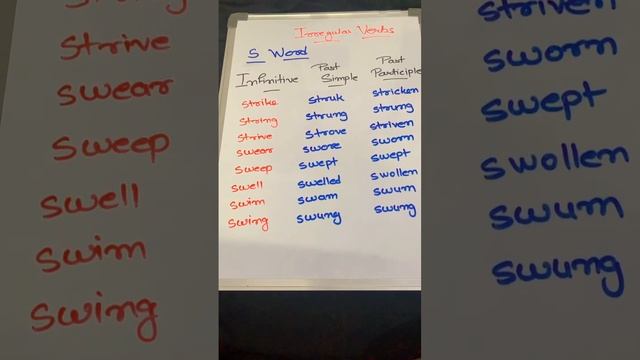 Irregular Verbs
S Word
Infinitive Past Simple Past Participle
strike struk stricken
string strung strung
strive strove striven
swear swore sworn
sweep swept swept
swell swelled swollen
swim swam swum
swing swung swung
strive
swear
sweep
swell
swim
swing
striven
sworn
swept
swollen
swum
swung